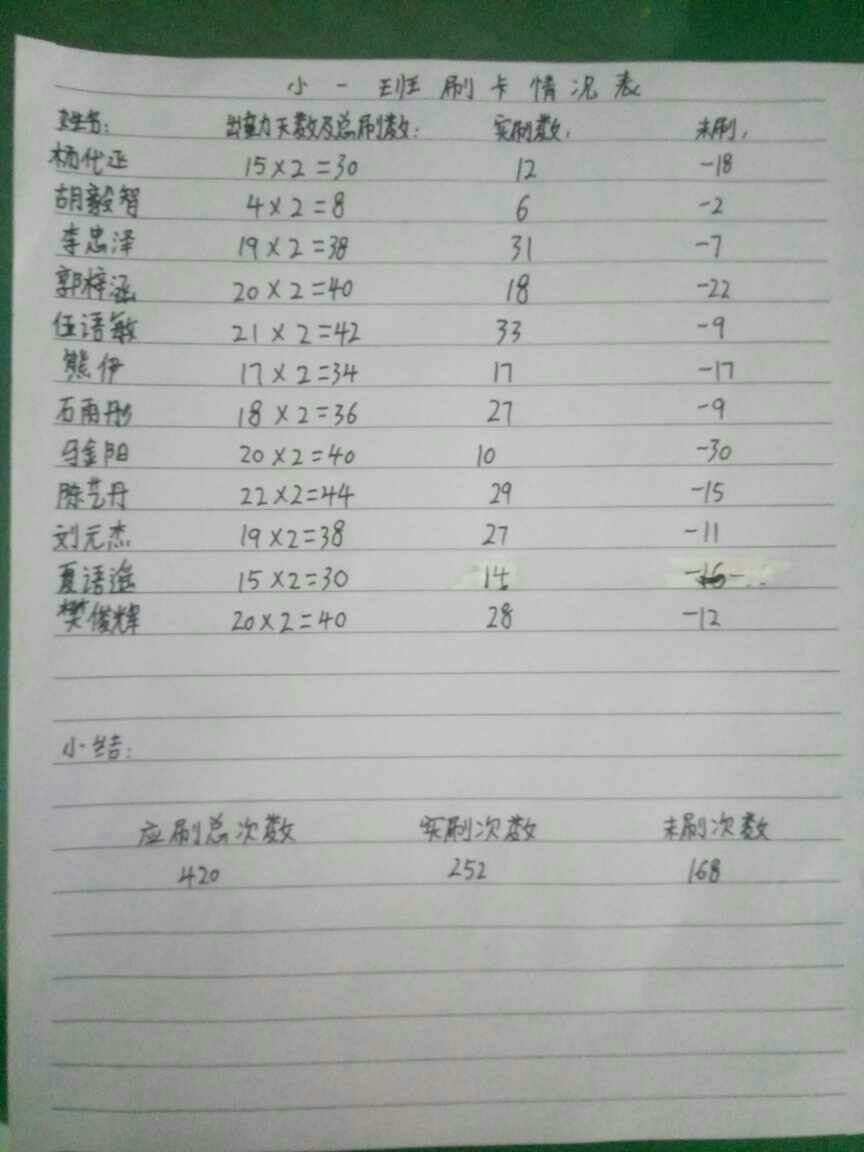 小一班刷卡情况表
姓名: 出勤天数及总刷数: 实刷数: 未刷:
杨代丞 15×2=30 12 -18
胡毅智 4×2=8 6 -2
李忠泽 19×2=38 31 -7
郭梓涵 20×2=40 18 -22
伍语敏 21×2=42 33 -9
熊伊 17×2=34 17 -17
石雨彤 18×2=36 27 -9
马金阳 20×2=40 10 -30
陈艺丹 22×2=44 29 -15
刘元杰 19×2=38 27 -11
夏语 15×2=30 14 -16
樊俊辉 20×2=40 28 -12
小结:
应刷总次数 实刷次数 未刷次数
420 252 168